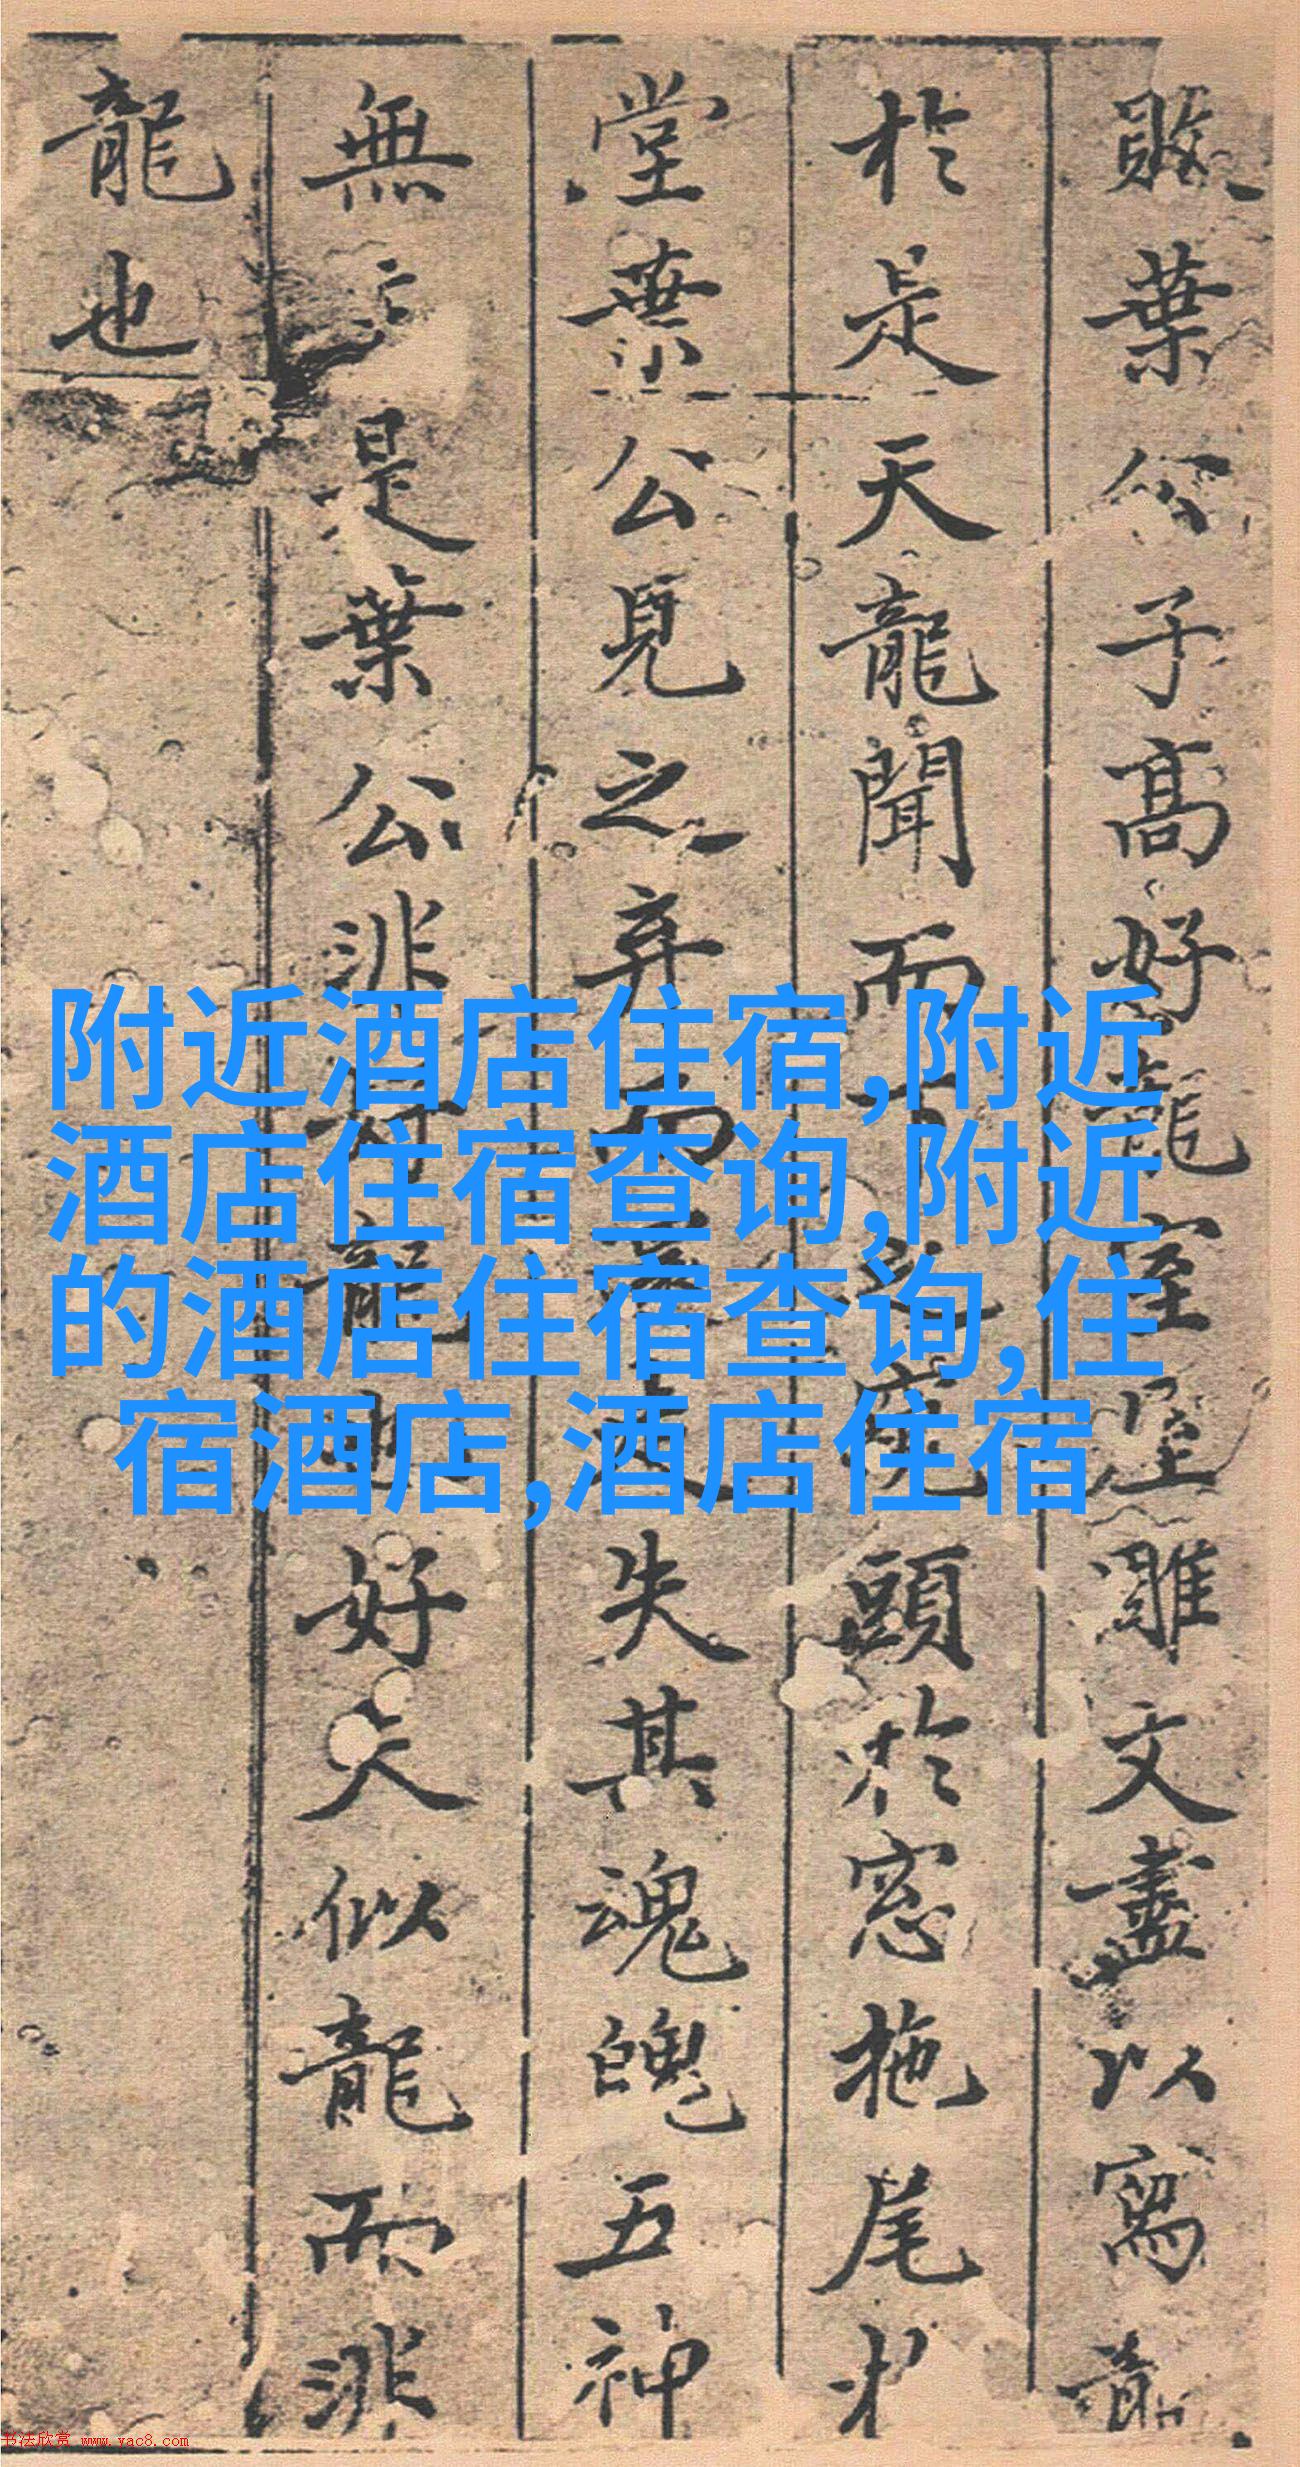 葉公子高好龍室屋雕文盡以寫龍
於是天龍聞而下之窺頭於窓拖尾於
堂葉公見之弃而還走失其魂魄五神
無主是葉公非好龍也好夫似龍而非
龍也
附近酒店住宿,附近
酒店住宿查询,附近
的酒店住宿查询,住
宿酒店,酒店住宿
书法欣赏 www.yac8.com